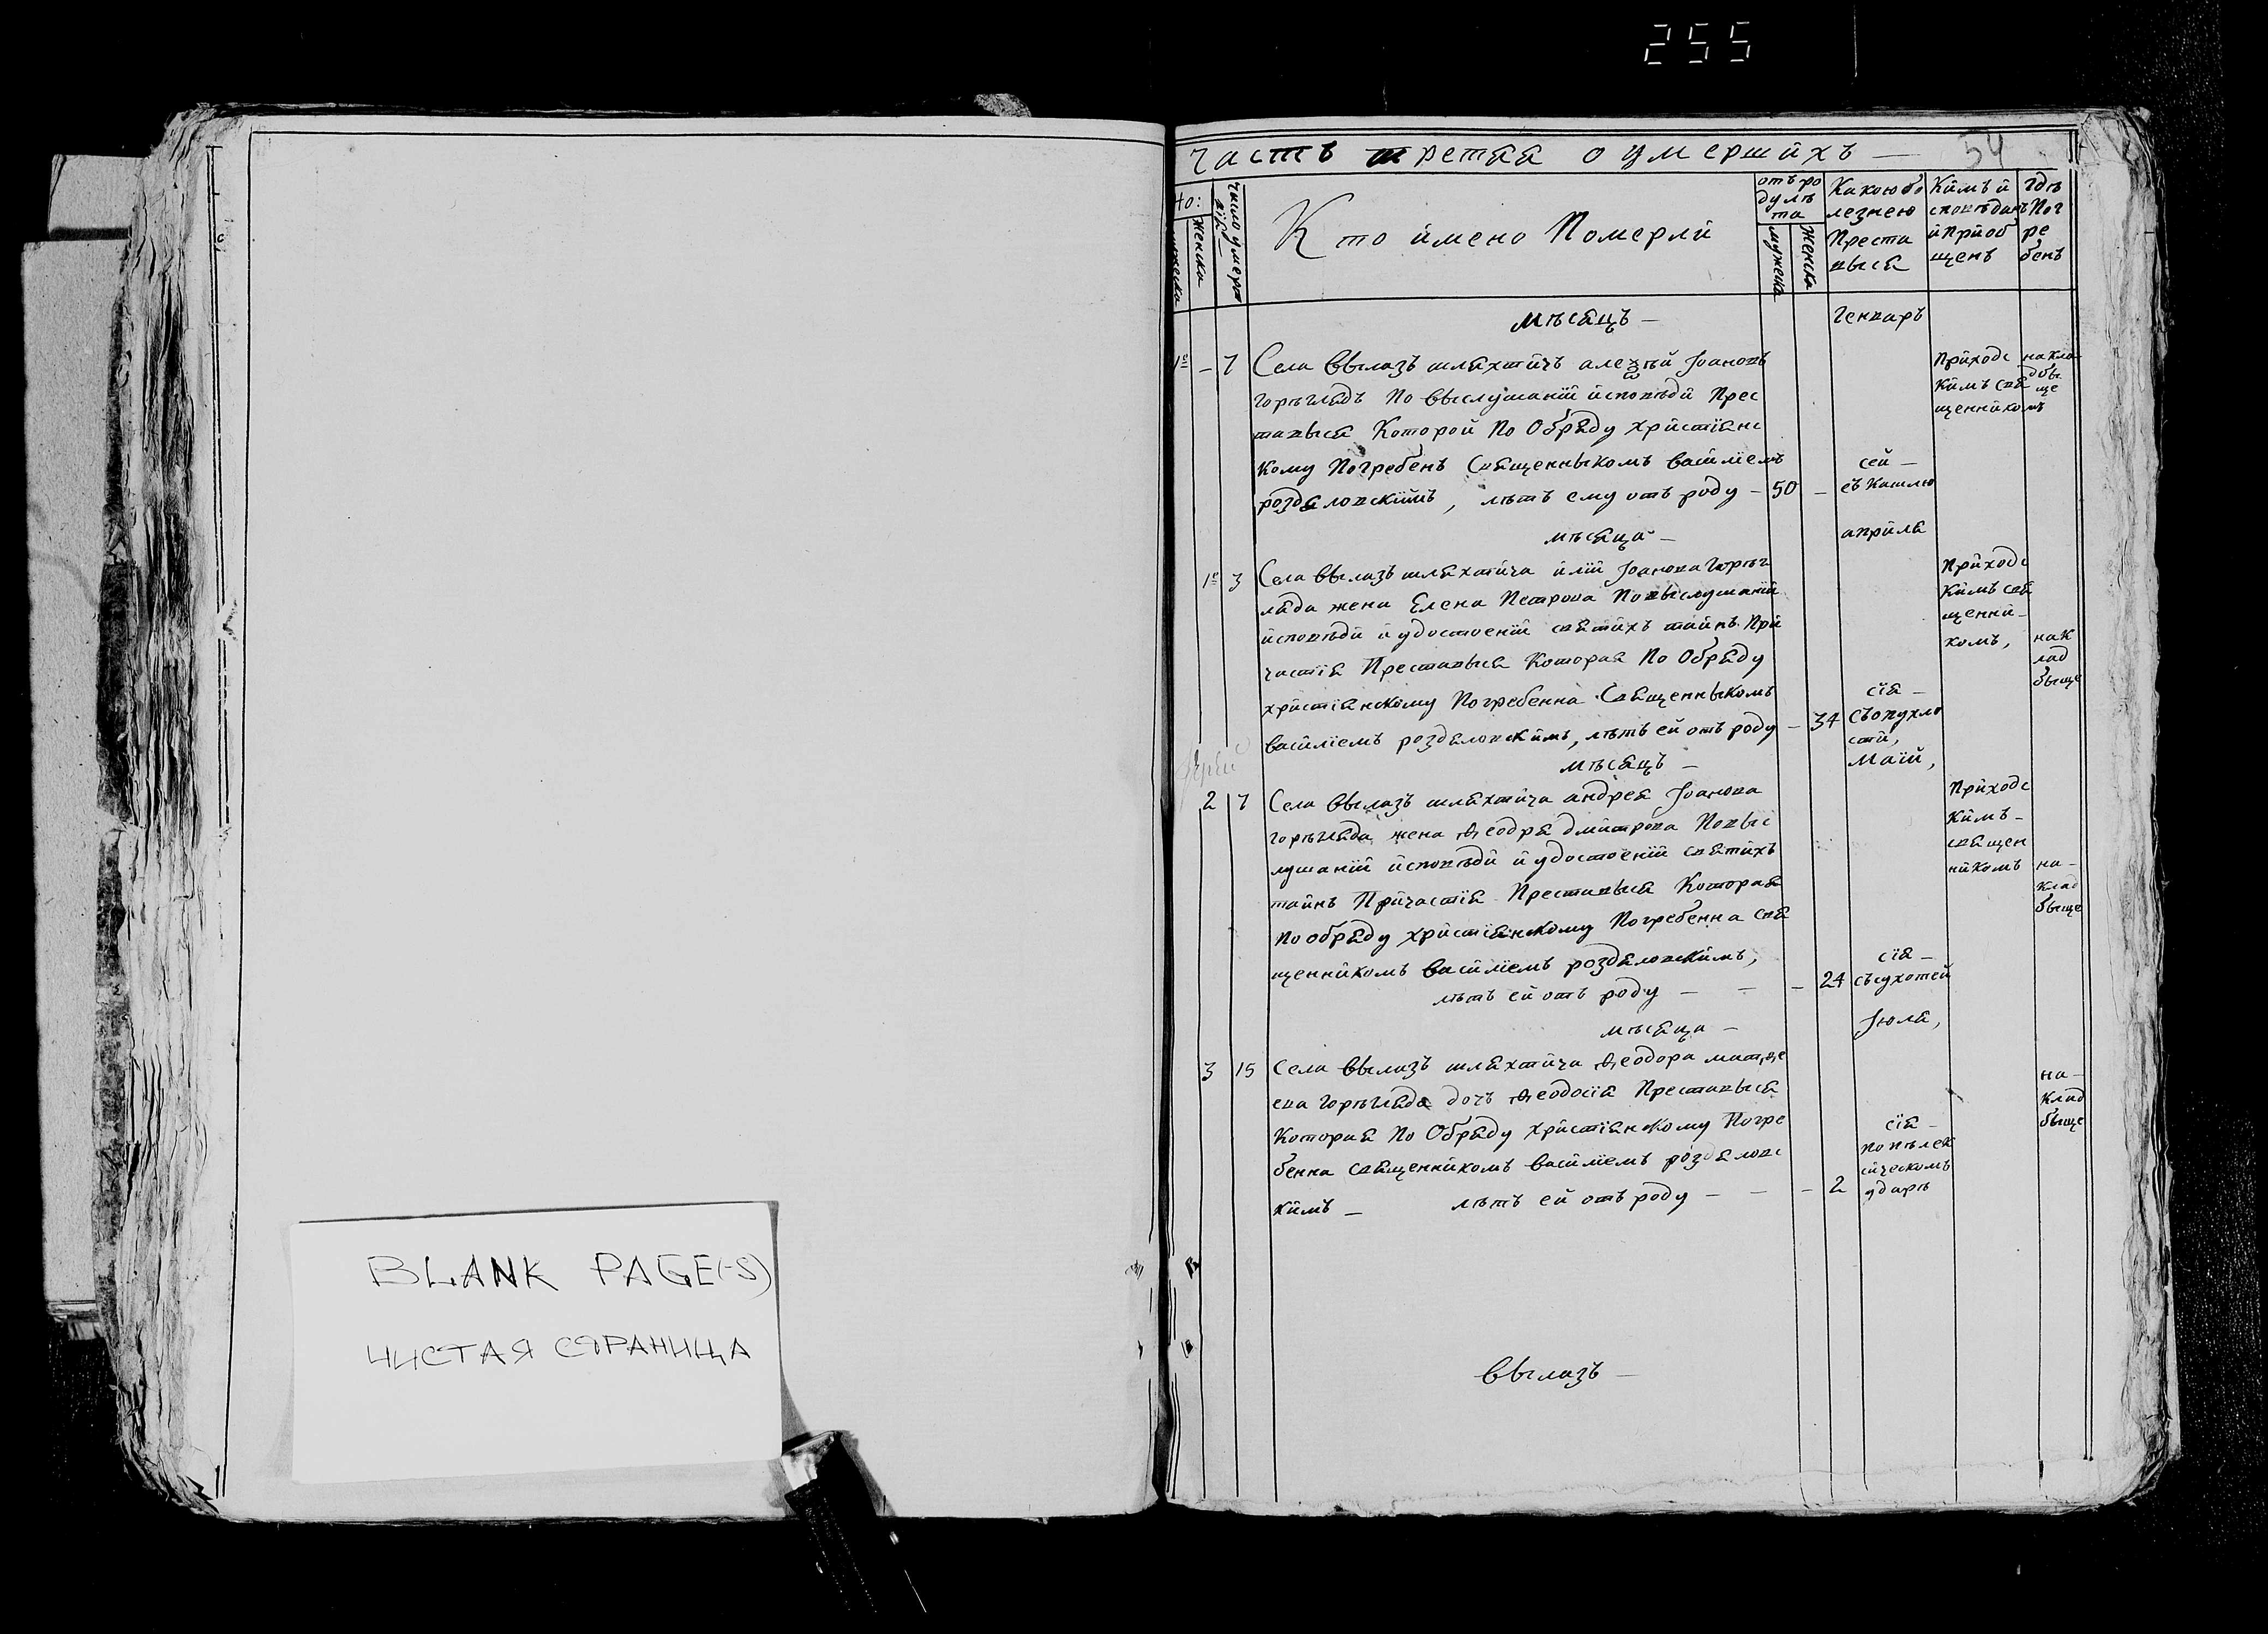 255
BLANK PAGE(-S)
ЧИСТАЯ СТРАНИЦА
часть третяя о умершихъ — 54
Но:
мужеска
женска
число умерт
Кто имено Померли
отъ ро
ду лѣ
та
мужеска
женска
Какою бо
лезнею
Преста
выся
Кимъ и
сповѣданъ
и приоб
щенъ
гдѣ
Пог
ре
бенъ
мѣсяцъ — генваръ
1е – 7 Села Вылазъ шляхтичъ алеѯѣй Іоановъ
горѣглядъ По выслушаніи исповѣди Прес
тавыся Которой По Обряду христіянс
кому Погребенъ Священныкомъ василіемъ
роздяловскимъ, лѣтъ ему отъ роду – 50 –
сей –
съ Кашлю
Приходс
Кимъ свя
щенникомъ
на кла
дбы
ще
мѣсяца – априля
1е 3 Села Вылазъ шляхтича иліи Іоанова Горѣг
ляда жена Елена Петрова По выслушаніи
исповѣди и удостоеніи святихъ тайнъ При
частія Преставыся Которая По Обряду
християнскому Погребенна Священныкомъ
василіемъ роздяловскимъ, лѣтъ ей отъ роду – 34
сія –
съ опухло
сти,
Приходс
Кимъ свя
щенни–
комъ,
на К
лад
быще
мѣсяцъ – маій,
2 7 Села Вылазъ шляхтича андрея Іоанова
горѣгляда жена Ѳеодря дмитрова По выс
лушаніи исповѣди и удостоеніи святихъ
тайнъ Причастія Преставыся Которая
По обряду христіянскому Погребенна свя
щенникомъ василіемъ роздяловскимъ,
лѣтъ ей отъ роду – – – 24
сія –
съ сухотей
Приходс
Кимъ –
священ
никомъ
на –
клад
быще
мѣсяца – Іюля,
3 15 Села Вылазъ шляхтича Ѳеодора матѳе
ева горѣгляда дочъ Ѳеодосія Преставыся
Которая По Обряду христіянскому Погре
бенна священникомъ василіемъ роздяловс
кимъ – лѣтъ ей отъ роду – – – 2
сія –
ударѣ
на –
Клад
быще
Вылазъ —